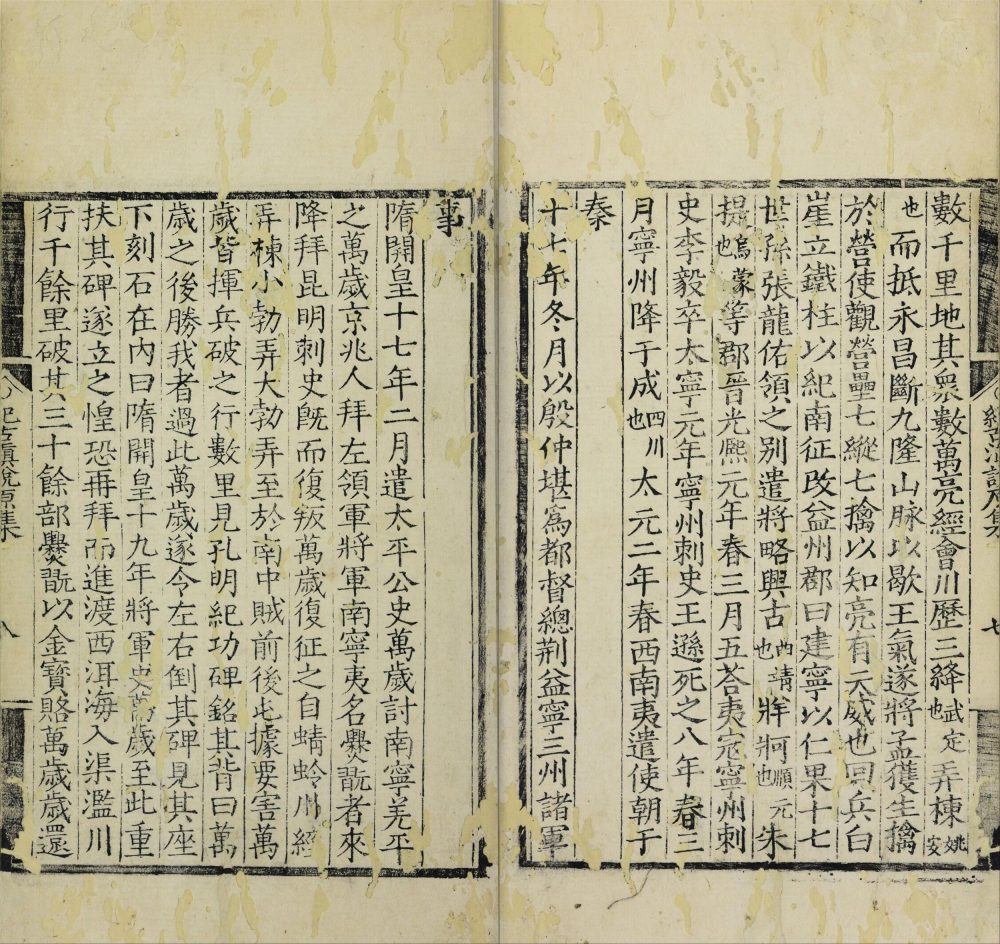 數千里地其衆數萬亮經會川歷三絳武定也弄棟姚安
也而抵永昌斷九隆山脉以歇王氣遂將孟獲生擒
於營使觀營壘七縱七擒以知亮有天威也回兵白
崖立鐵柱以紀南征改益州郡曰建寧以仁果十七
世孫張龍佑領之别遣將略興古西靖也牂牁順元也朱
提烏蒙也等郡晉光熈元年春三月五荅夷宼寧州刺
史李毅卒太寧元年寧州刺史王遜死之八年春三
月寧州降于成四川也太元二年春西南夷遣使朝于
秦
十七年冬月以殷仲堪爲都督總荆益寧三州諸軍
事
隋開皇十七年二月遣太平公史萬歲討南寧羌平
之萬歲京兆人拜左領軍將軍南寧夷名爨翫者來
降拜昆明刺史旣而復叛萬歲復征之自蜻蛉川經
弄棟小勃弄大勃弄至於南中賊前後屯據要害萬
歲皆揮兵破之行數里見孔明紀功碑銘其背曰萬
歲之後勝我者過此萬歲遂令左右倒其碑見其座
下刻石在內曰隋開皇十九年將軍史萬歲至此重
扶其碑遂立之惶恐再拜而進渡西洱海入渠濫川
行千餘里破其三十餘部爨翫以金寳賂萬歲歲還
紀古滇說原集
八